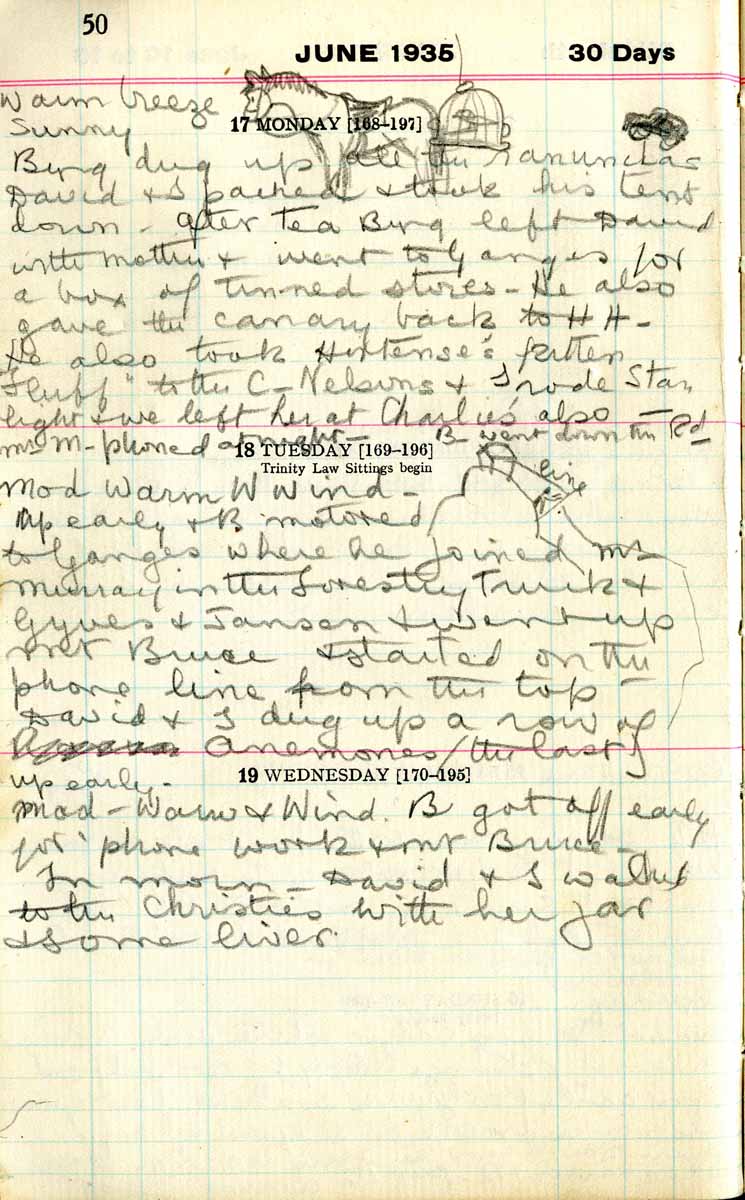 50
JUNE 1935 30 Days
Warm breeze
Sunny
17 MONDAY [168–197]
Byng dug up all the ranunclas
David & I packed & took his tent
down - after Tea Byng left David
with mother & went to Ganges for
a box of tinned stores - He also
gave the canary back to H H -
He also took Hortense's kitten
"Fluff" to the C- Nelsons & I rode Star
light & we left her at Charlie's also -
Mrs M - phoned at night - B- went down the Rd
18 TUESDAY [169–196]
Trinity Law Sittings begin
line
Mod Warm W Wind -
Up early & B motored
to Ganges where he joined Mr
Murray in the Forestry Truck &
Gyves & Jansen & went up
Mt Bruce & started on the
phone line from the top -
David & I dug up a row of
Anemones (the last)
19 WEDNESDAY [170–195]
up early -
Mod - Warm & Wind. B got off early
for 'phone work & Mt Bruce -
In morn - David & I walked
to the Christies with her jar
& some liver.